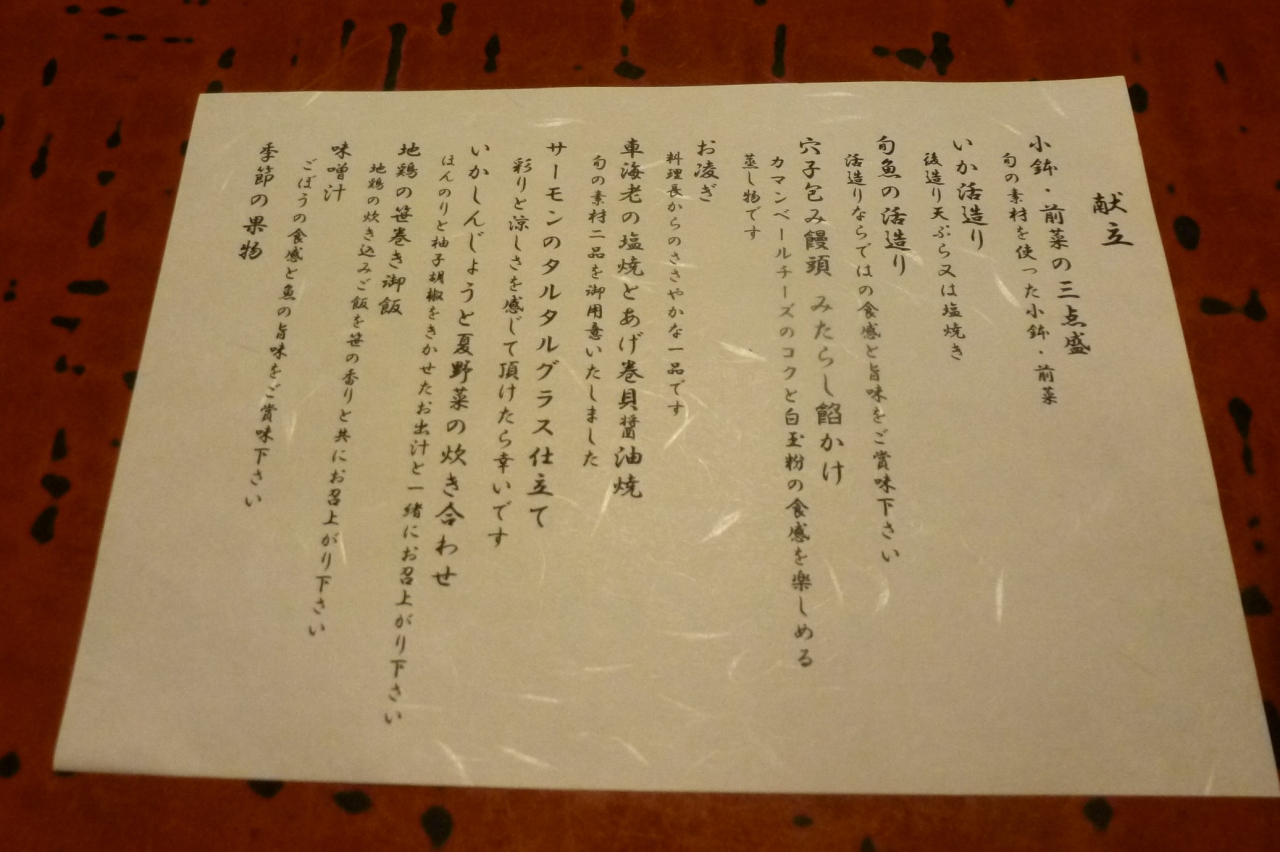 献立
小鉢・前菜の三点盛
旬の素材を使った小鉢・前菜
いか活造り
後造り天ぷら又は塩焼き
旬魚の活造り
活造りならではの食感と旨味をご賞味下さい
穴子包み饅頭 みたらし餡かけ
カマンベールチーズのコクと白玉粉の食感を楽しめる
蒸し物です
お凌ぎ
料理長からのささやかな一品です
車海老の塩焼とあげ巻貝醤油焼
旬の素材二品を御用意いたしました
サーモンのタルタルグラス仕立て
彩りと涼しさを感じて頂けたら幸いです
いかしんじょうと夏野菜の炊き合わせ
ほんのりと柚子胡椒をきかせたお出汁と一緒にお召上がり下さい
地鶏の笹巻き御飯
地鶏の炊き込みご飯を笹の香りと共にお召上がり下さい
味噌汁
ごぼうの食感と魚の旨味をご賞味下さい
季節の果物